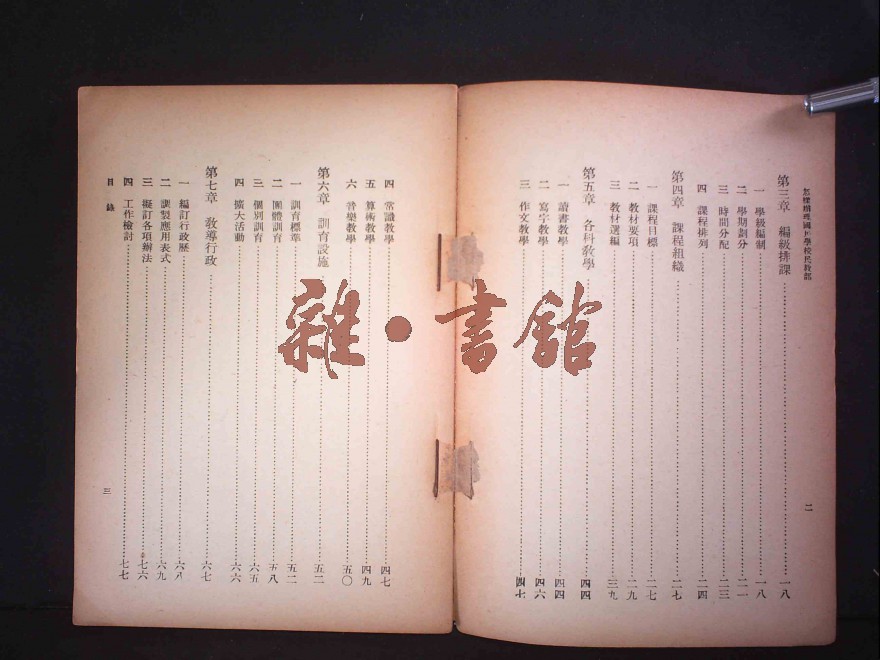 怎樣辦理國民學校民教部
第三章 編級排課…一八
一 學級編制…一八
二 學期劃分…二一
三 時間分配…二三
四 課程排列…二四
第四章 課程組織…二七
一 課程目標…二七
二 教材要項…二九
三 教材選編…三九
第五章 各科教學…四四
一 讀書教學…四四
二 寫字教學…四六
三 作文教學…四七
二
四 常識教學…四七
五 算術教學…四九
六 音樂教學…五〇
第六章 訓育設施…五二
一 訓育標準…五二
二 團體訓育…五八
三 個別訓育…六五
四 擴大活動…六六
第七章 教導行政…六七
一 編訂行政歷…六八
二 訓製應用表式…六九
三 擬訂各項辦法…七六
四 工作檢討…七七
目錄
三
雜·書館